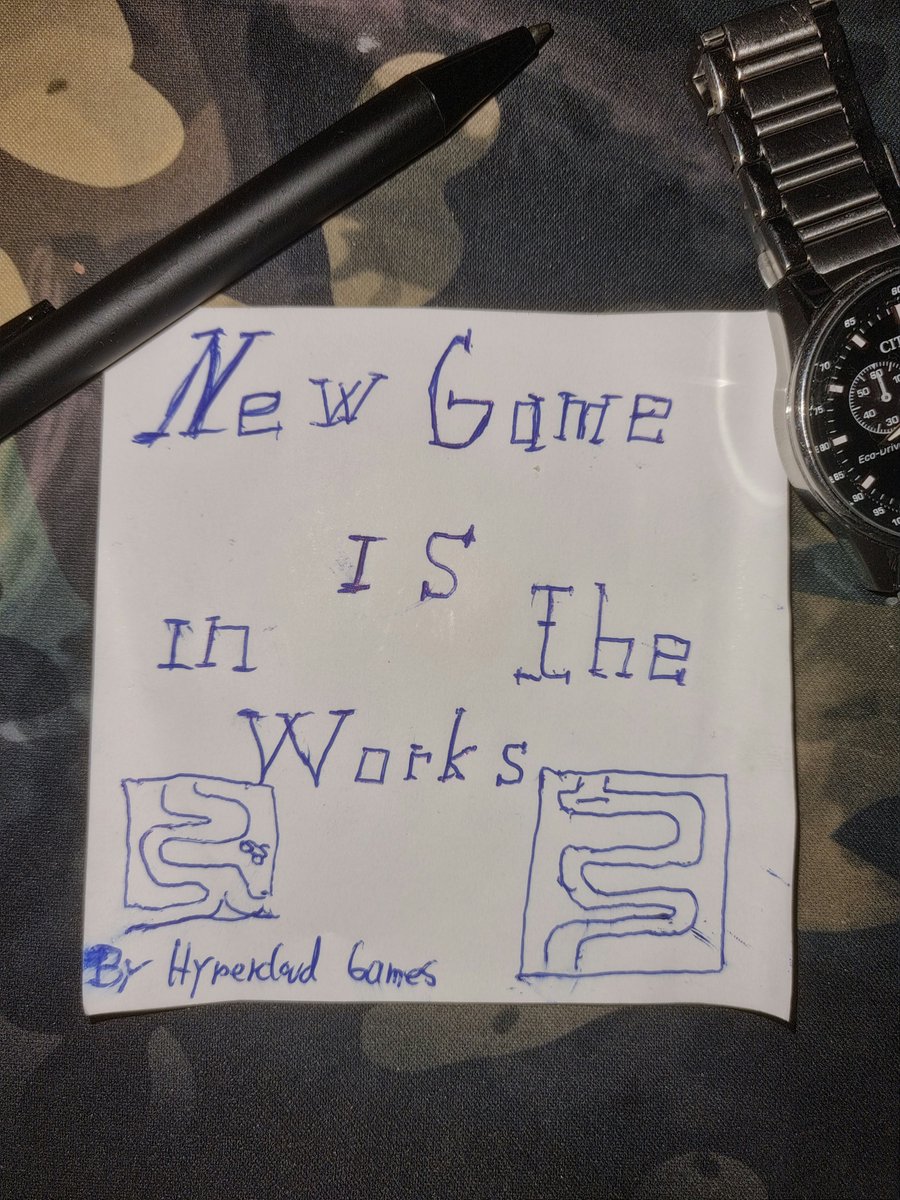 New Game
is
in The
Works
By Hypercloud Games
CIT
Eco-Driv
60
65
70
75
80
85
90
95
10
60
50
40
30
10